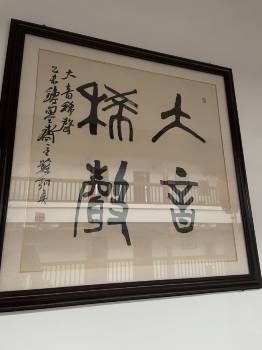 大音
稀聲
大音稀聲
乙未齋主蘇